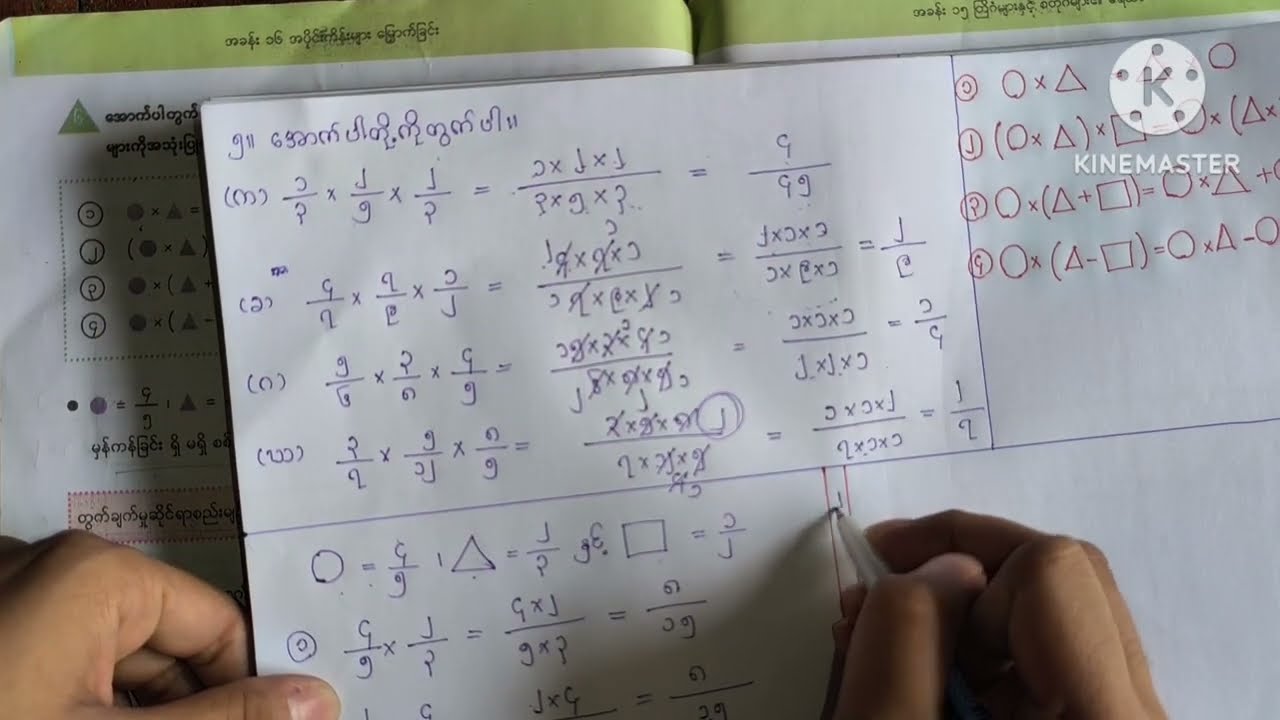 အခန်း ၁၆ အပိုင်းကိန်းများ မြှောက်ခြင်း
အခန်း ၁၅ တြိဂံများနှင့် စတုဂံများ၏
အောက်ပါတွက်
များကိုအသုံးပြု
၁ ● × ▲ =
၂ (● × ▲)
၃ ● × (▲ +
၄ ● × (▲ -
● = ၄/၅ ၊ ▲ =
မှန်ကန်ခြင်း ရှိ မရှိ
တွက်ချက်မှုဆိုင်ရာစည်းမျ
၅။ အောက်ပါတို့ကိုတွက်ပါ။
(က) ၁/၃ × ၂/၅ × ၂/၃ = ၁×၂×၂/၃×၅×၃ = ၄/၄၅
(ခ) ၄/၇ × ၇/၉ × ၁/၂ = = ၁×၁×၂/၁×၉×၁ = ၂/၉
(ဂ) ၅/၆ × ၃/၈ × ၄/၅ = = ၁×၁×၁/၁×၂×၂ = ၁/၄
(ဃ) ၃/၇ × ၅/၁၂ × ၈/၅ = = ၂×၁×၁/၁×၁×၇ = ၂/၇
○ = ၄/၅ ၊ △ = ၂/၃ နှင့် □ = ၁/၂
၁ ၄/၅ × ၂/၃ = ၄×၂/၅×၃ = ၈/၁၅
၂×၄ = ၈/၁၅
၁ ○ × △ ○
၂ (○ × △) × □ ○ × (△ ×
၃ ○ × (△ + □) = ○ × △ +
၄ ○ × (△ - □) = ○ × △ - ○
KINEMASTER